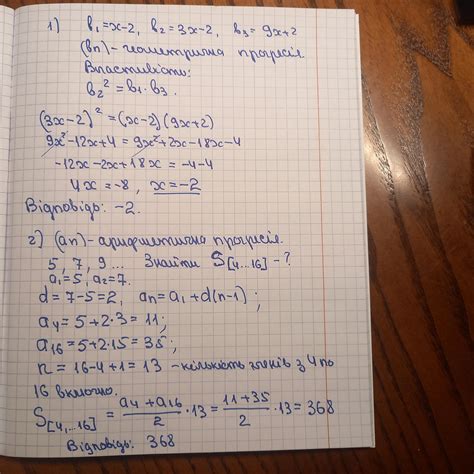 1) b₁=x-2, b₂=3x-2, b₃=9x+2
(bn)-геометрична прогресія.
Властивість:
b₂²=b₁·b₃.
(3x-2)²=(x-2)(9x+2)
9x²-12x+4=9x²+2x-18x-4
-12x-2x+18x=-4-4
4x=-8, x=-2
Відповідь: -2.
2) (an)-арифметична прогресія.
5, 7, 9... Знайти S[4...16]-?
a₁=5, a₂=7.
d=7-5=2, an=a₁+d(n-1);
a₄=5+2·3=11;
a₁₆=5+2·15=35;
n=16-4+1=13 -кількість членів з 4 по
16 включно.
S[4,...16]=(a₄+a₁₆)/2·13=(11+35)/2·13=368
Відповідь: 368